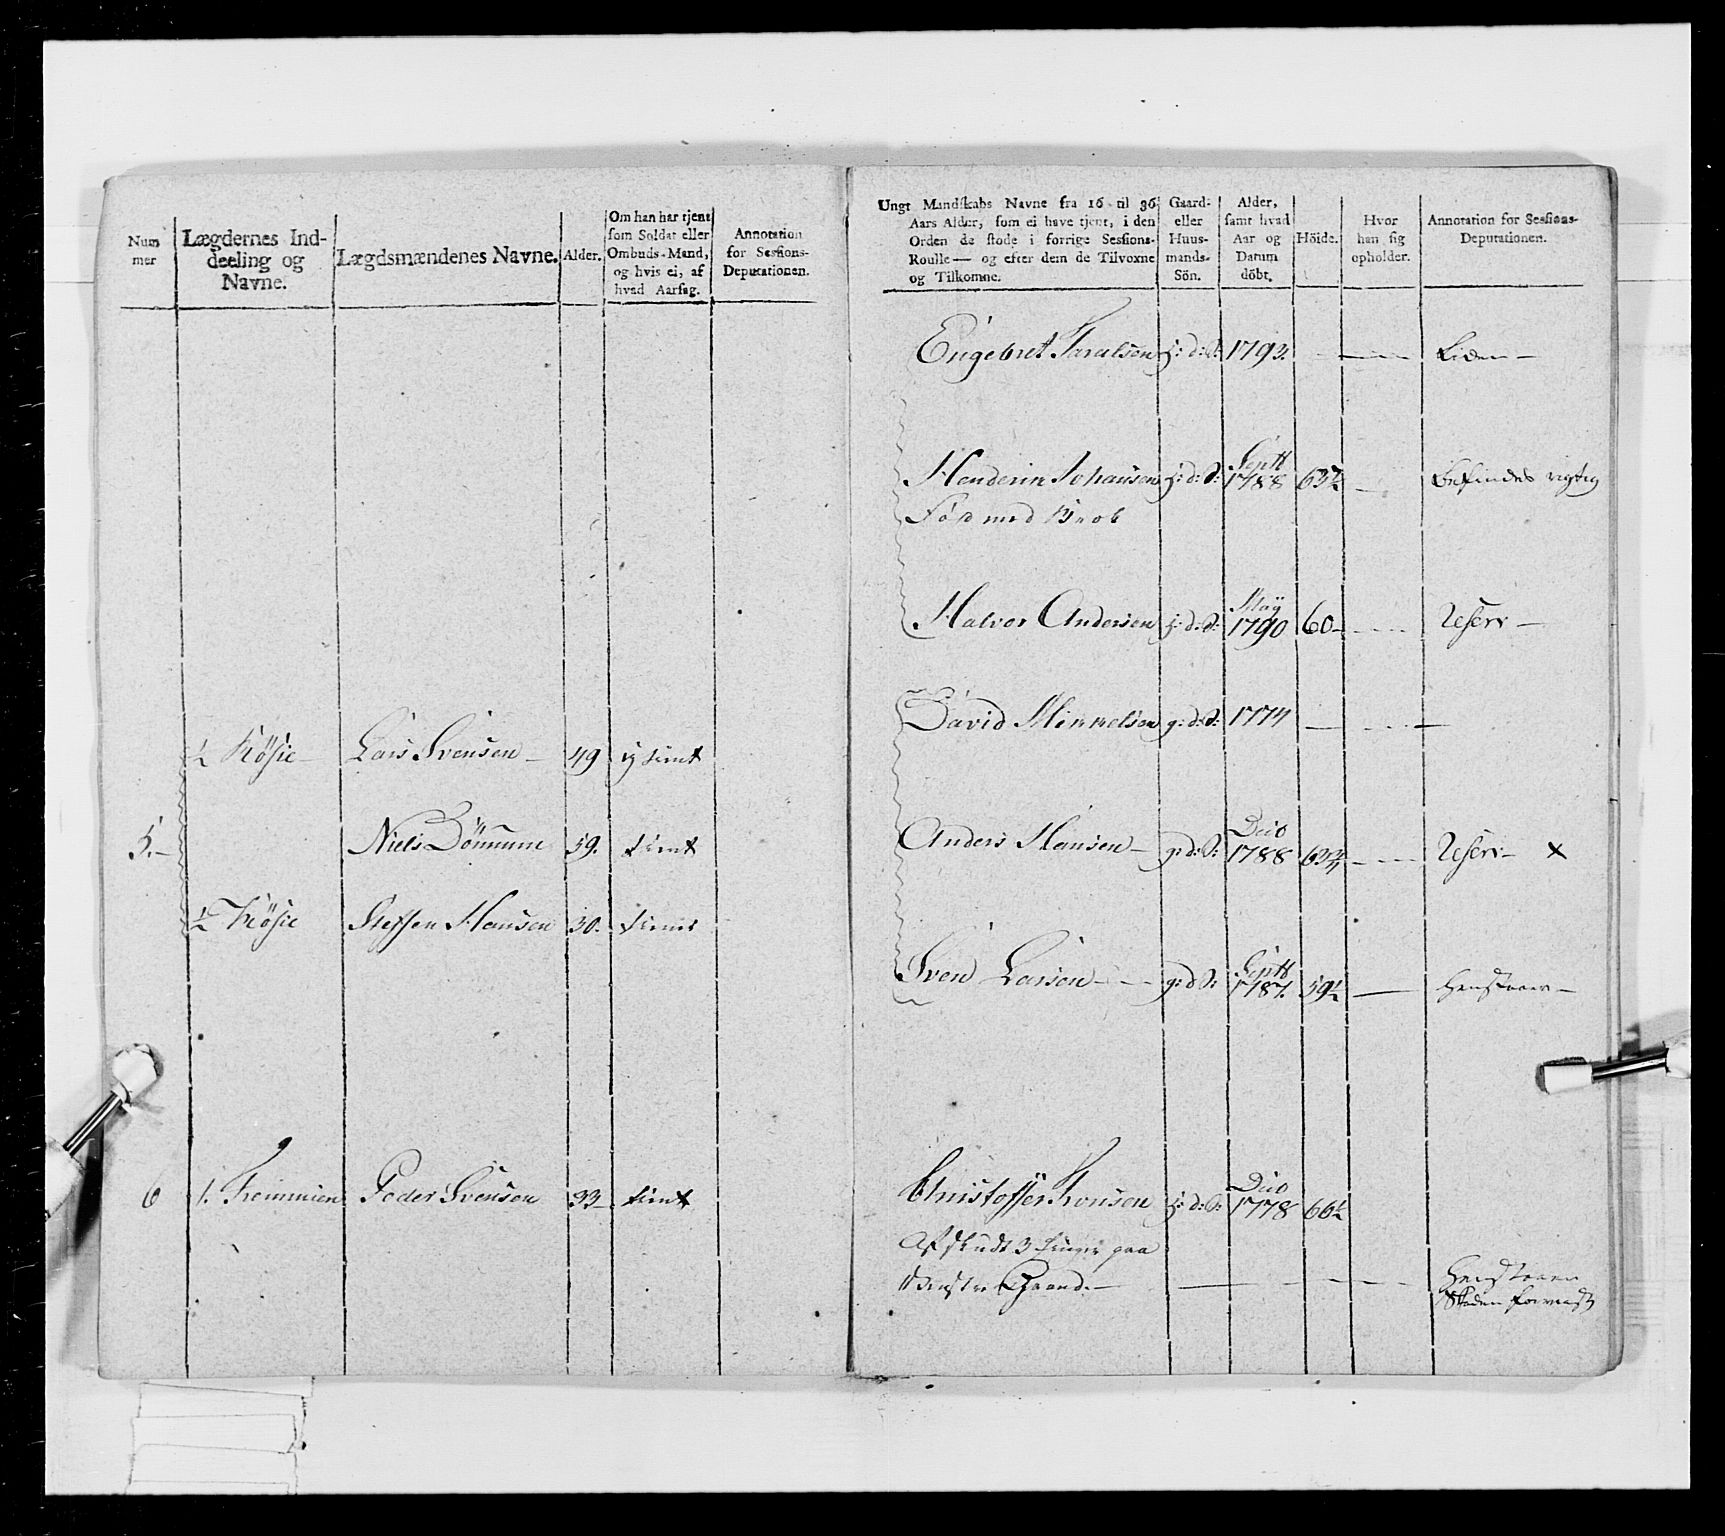 Num
mer
Lægdernes Ind-
deeling og
Navne.
Lægdsmændenes Navne.
Alder.
Om han har tjent
som Soldat eller
Ombuds-Mand,
og hvis ei, af
hvad Aarsag.
Annotation
for Sessions-
Deputationen.
½ Kiøsie
Lars Svensen
49
5.
Niels Dönnum
59.
tient
½ Kiøsie
Steffen Hansen
30.
tient
6
1. Fremmien
Peder Svensen
33
tient
Ungt Mandskabs Navne fra 16 til 36
Aars Alder, som ei have tjent, i den
Orden de stode i forrige Sessions-
Roulle — og efter dem de Tilvoxne
og Tilkomne.
Gaard-
eller
Huus-
mands-
Sön.
Alder,
samt hvad
Aar og
Datum
döbt.
Höide.
Hvor
han sig
opholder.
Annotation for Sessions-
Deputationen.
Engebret Taralsen j: d: S: 1793. Liden
Septb
Henderin Johansen j: d: S: 1788 63½ Befindes rigtig
Fød med Brok
May
Halvor Andersen j: d: S: 1790 60 Reserv
David Mikkelsen g: d: S: 1774
Decb
Anders Hansen g: d: S: 1788 63¾ Reserv x
Septb
Sven Larsen g: d S: 1787. 59½ Henstaaer
Decb
Christoffer Tronsen j: d: S: 1778 66½
Afskudt 3 Finger paa
Venstre Haand.
Henstaaer
Skaden forvist